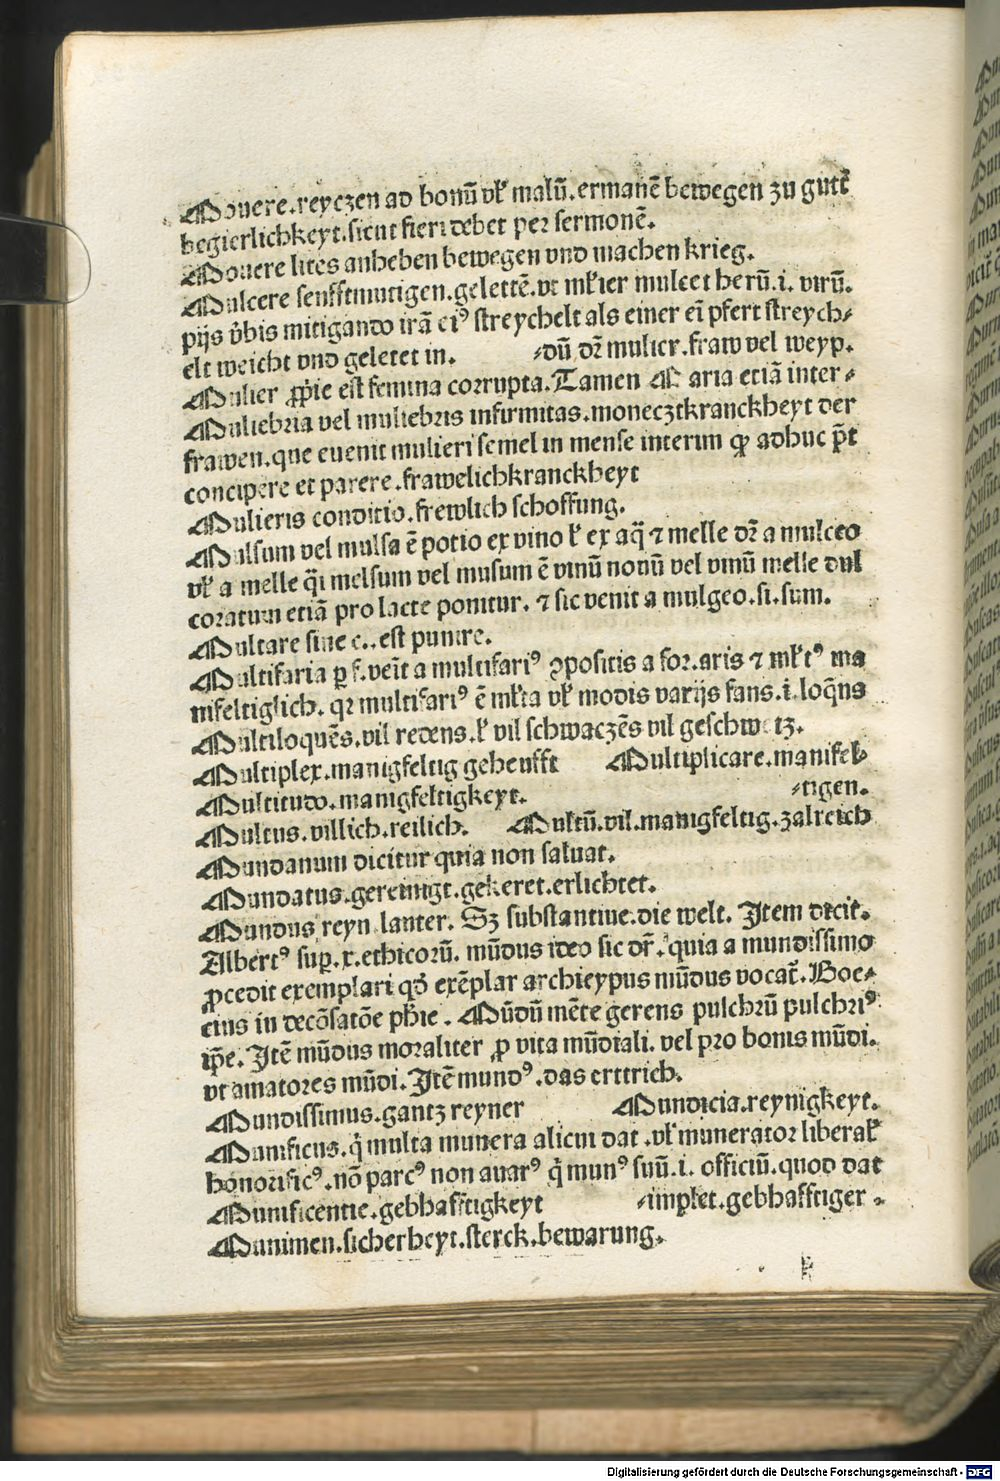 Mouere.reyczen ad bonū vł malū.ermanē bewegen zu gutē
begierlichkeyt.sicut fieri debet per sermonē.
Mouere lites anheben bewegen vnd machen krieg.
Mulcere senfftmutigen.gelettē.vt mł'ier mulcet herū.i. virū.
pijs v̄bis mitigando irā eiꝰ streychelt als einer eī pfert streych⸗
elt weicht vnd geletet in. ⸗dū dr̄ mulier.fraw vel weyp.
Mulier ꝓp̄ie est femina corrupta.Tamen Maria etiā inter⸗
Muliebria vel muliebris infirmitas.moneczkranckheyt der
frawen.que euenit mulieri semel in mense interim qꝫ adhuc p̄t
concipere et parere.frawelichkranckheyt
Mulieris conditio.frewlich schoffung.
Mulsum vel mulsa ē potio ex vino ł ex aq̄ ⁊ melle dr̄ a mulceo
vł a melle q̄i melsum vel musum ē vinū nouū vel vinū melle dul
coratum etiā pro lacte ponitur. ⁊ sic venit a mulgeo.si.sum.
Multare sine c..est punire.
Multifaria ꝑ f.veīt a multifariꝰ ꝯpositis a for.aris ⁊ mł'tꝰ ma
nifeltiglich. qꝛ multifariꝰ ē mł'ta vł modis varijs fans.i.loq̄ns
Multiloquēs.vil redens.ł vil schwaczēs vil geschwetz.
Multiplex.manigfeltig geheufft Multiplicare.manifel⸗
Multitudo.manigfeltigkeyt. ⸗tigen.
Multus.villich.reilich. Multū.vil.manigfeltig.zalreich
Mundanum dicitur quia non saluat.
Mundatus.gereinigt.gekeret.erlichtet.
Mundus reyn lauter. Sz substantiue.die welt. Item dicit.
Albertꝰ sup.x.ethicorū. mūdus ideo sic dr̄. quia a mundissimo
ꝓcedit exemplari qd̄ exēplar archieypus mūdus vocat̄.Boe⸗
cius in decōsatōe ph̄ie. Mūdū mēte gerens pulchrū pulchriꝰ
ip̄e. Itē mūdus moraliter ꝓ vita mūdiali. vel pro bonis mūdi.
vt amatores mūdi.Itē mundꝰ.das erttrich.
Mundissimus.gantz reyner Mundicia.reynigkeyt.
Munificus.q̄ multa munera alicui dat.vł munerator liberał
honorificꝰ.nō parcꝰ non auarꝰ q̄ munꝰ suū.i. officiū.quod dat
Munificentie.gebhafftigkeyt ⸗implet.gebhafftiger.
Munimen.sicherheyt.sterck.bewarung.
Digitalisierung gefördert durch die Deutsche Forschungsgemeinschaft - DFG